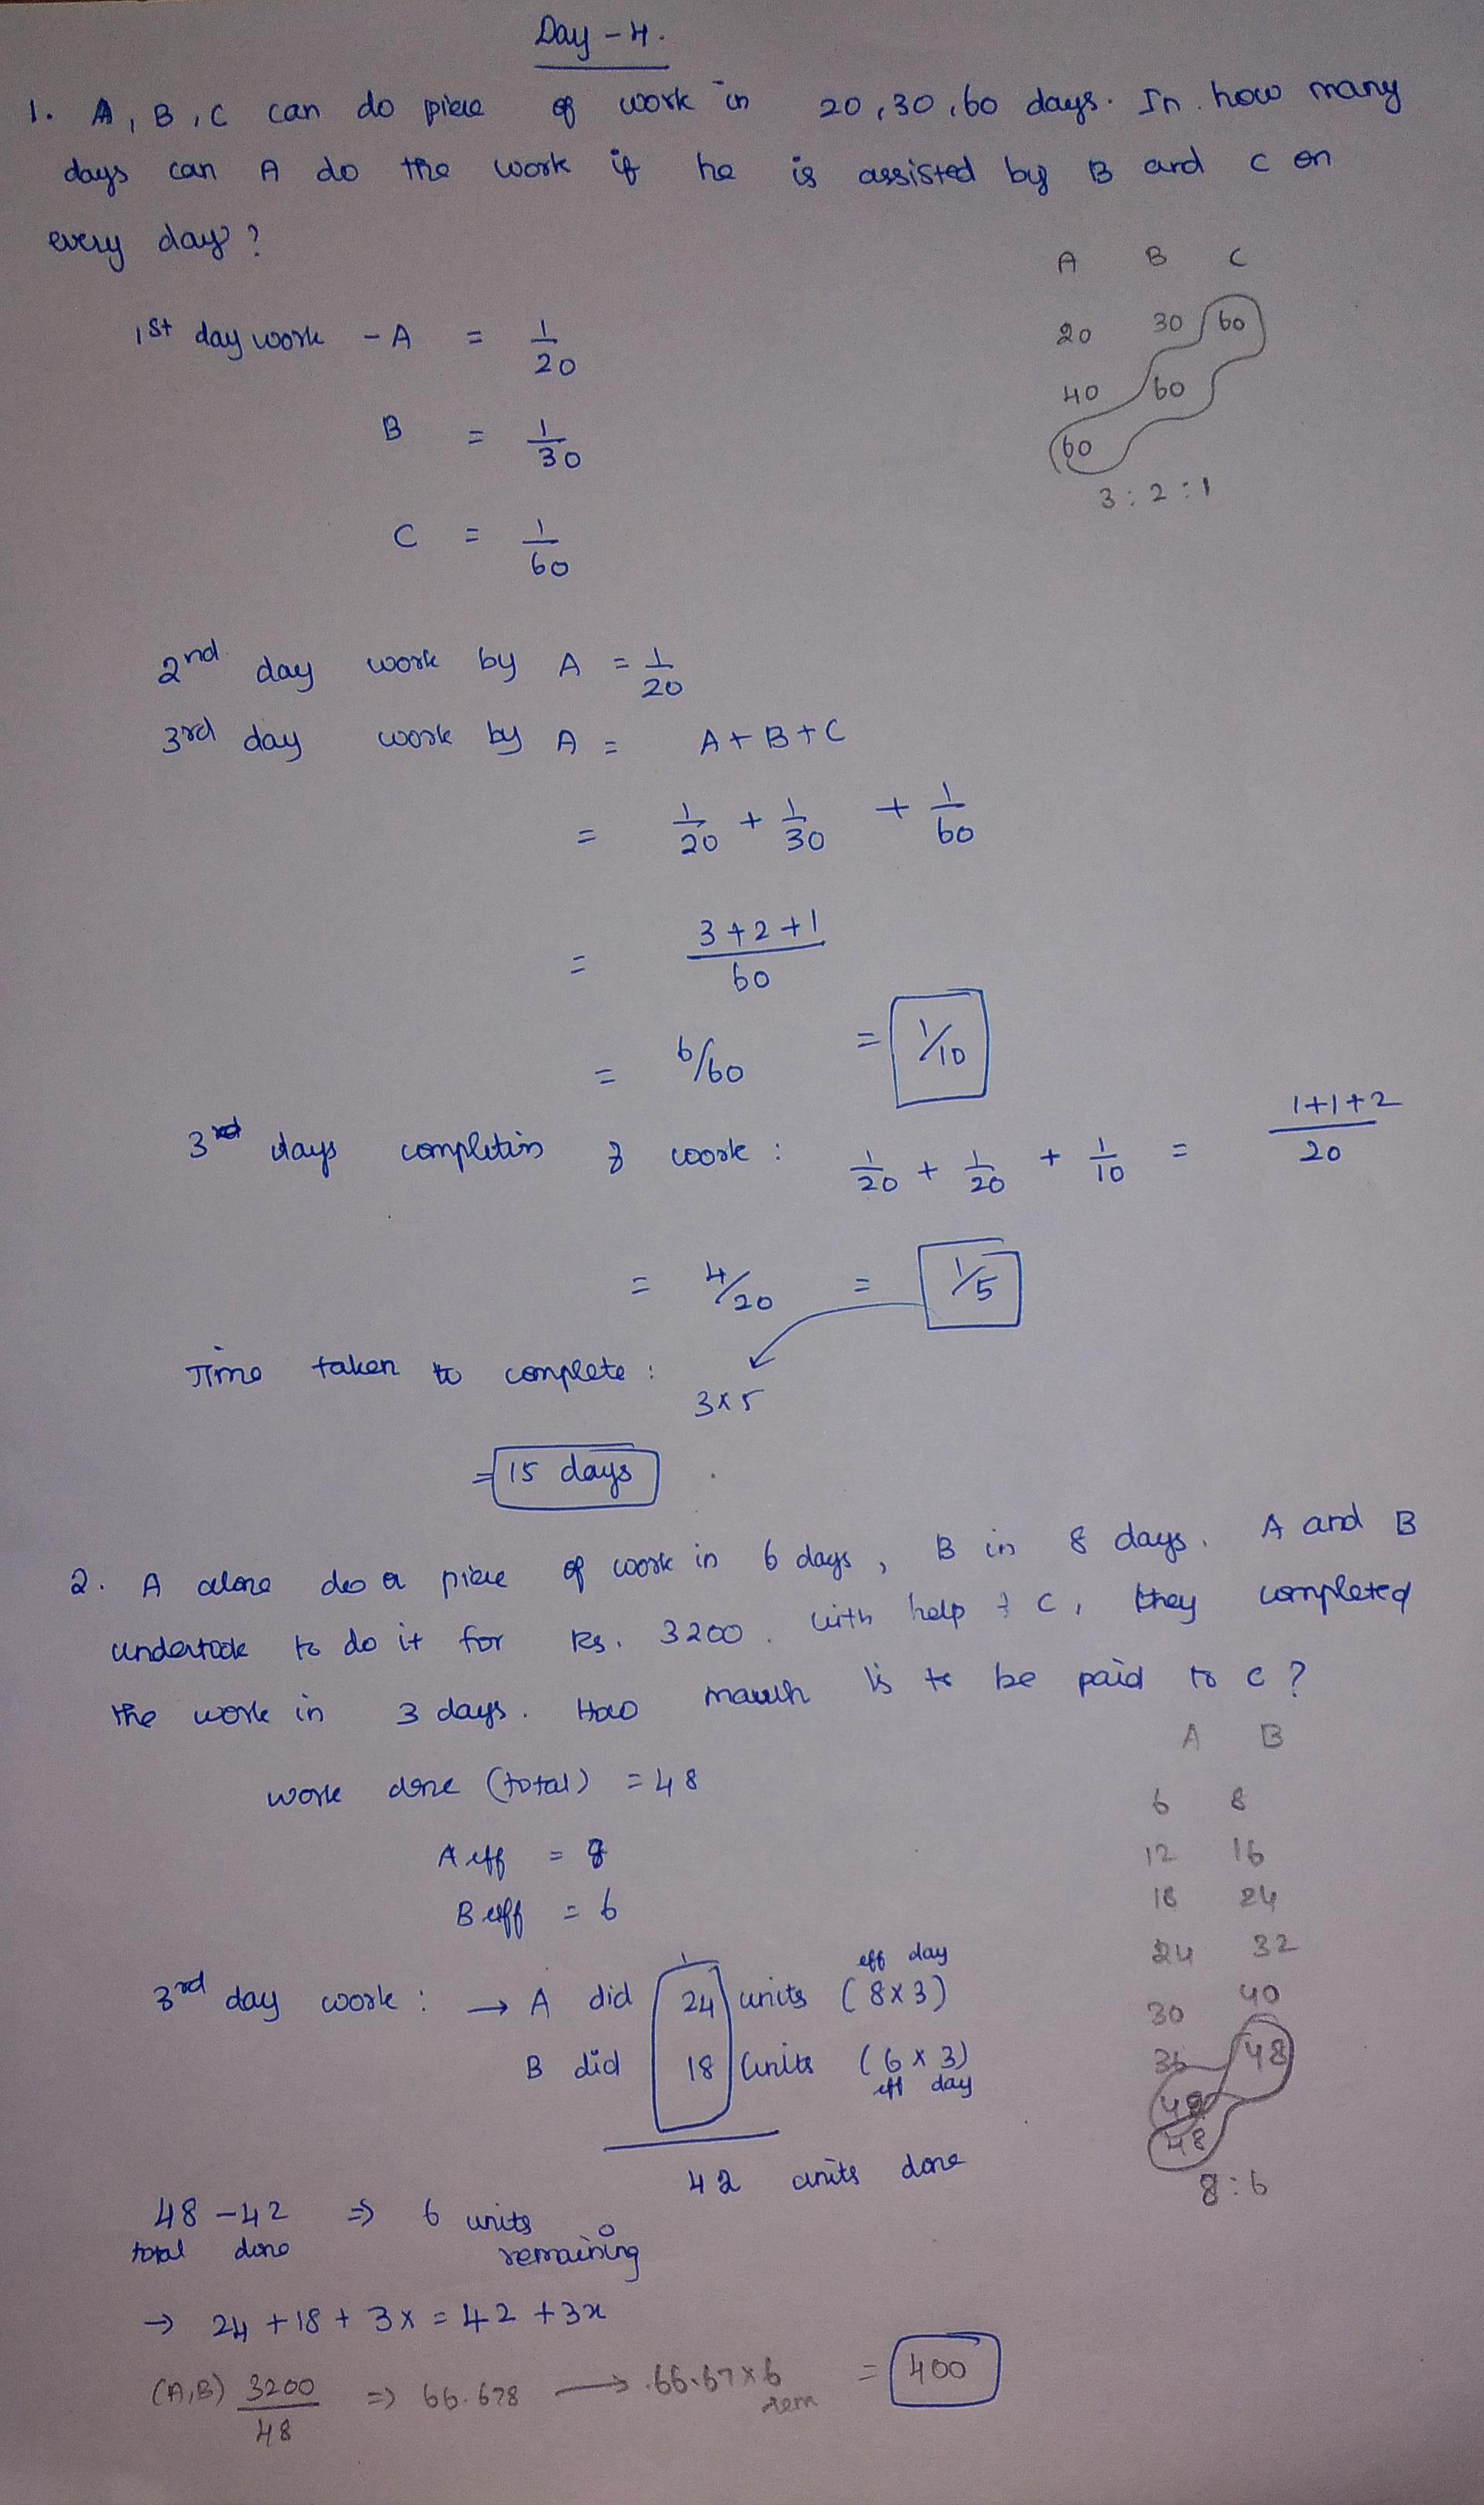 Day - 4.
1. A, B, C can do piece of work in 20, 30, 60 days. In how many
days can A do the work if he is assisted by B and C on
every day?
A B C
20 30 60
40 60
60
3 : 2 : 1
1st day work - A = 1/20
B = 1/30
C = 1/60
2nd day work by A = 1/20
3rd day work by A = A + B + C
= 1/20 + 1/30 + 1/60
= 3 + 2 + 1 / 60
= 6/60 = 1/10
3 days completin of work : 1/20 + 1/20 + 1/10 = 1+1+2 / 20
= 4/20 = 1/5
Time taken to complete : 3 x 5
= 15 days
2. A alone do a piece of work in 6 days, B in 8 days. A and B
undertook to do it for Rs. 3200. with help of C, they completed
the work in 3 days. How much is to be paid to C?
A B
6 8
12 16
18 24
24 32
30 40
36 48
48
8 : 6
work done (total) = 48
A eff = 8
B eff = 6
3rd day work : → A did 24 units (8 x 3)
eff day
B did 18 units (6 x 3)
eff day
42 units done
48 - 42 ⇒ 6 units
total done remaining
→ 24 + 18 + 3x = 42 + 3x
(A,B) 3200/48 ⇒ 66.678 → 66.67 x 6 = 400
rem